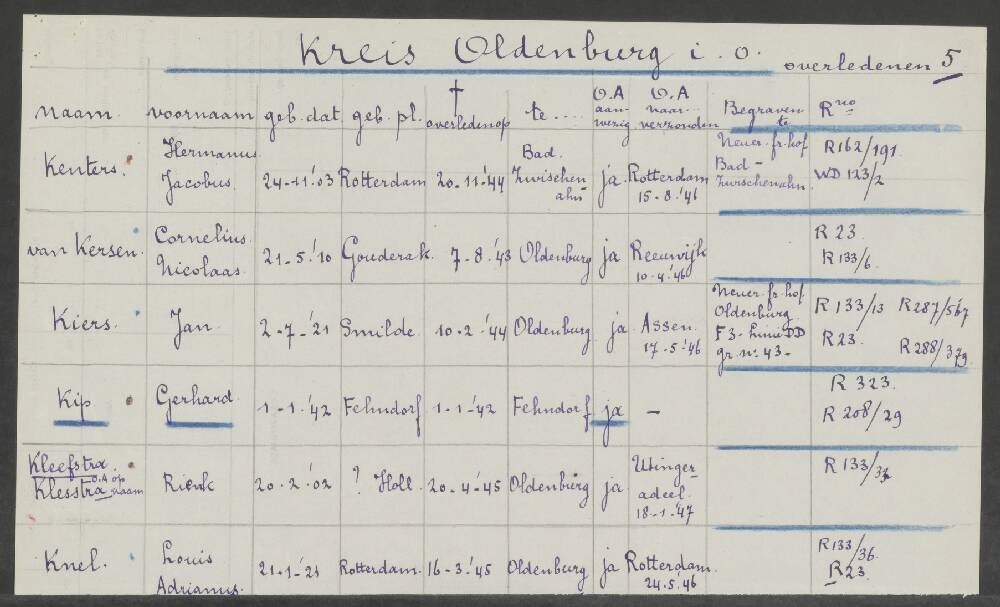 Kreis Oldenburg i. o. overledenen 5
naam. voornaam geb. dat. geb. pl. † overleden op te .... O.A aan-wezig O.A naar verzonden Begraven te Rno
Kenters. Hermanus Jacobus. 24-11-'03 Rotterdam 20-11-'44 Bad. Zwischenahn ja. Rotterdam 15-8-'46 Neuer-fr-hof Bad-Zwischenahn. R162/191 WD 123/2
van Kersen. Cornelius Nicolaas. 21-5-'10 Gouderak. 7-8-'43 Oldenburg ja Reeuwijk 10-4-'46 R 23. R 133/6
Kiers. Jan. 2-7-'21 Smilde. 10-2-'44 Oldenburg ja. Assen. 17-5-'46 Neuer-fr-hof. Oldenburg F3-Linie DD gr. no. 43- R 133/13 R287/567 R23. R288/379
Kip. Gerhard. 1-1-'42 Fehndorf 1-1-'42 Fehndorf ja - R 323. R 208/29
Kleefstra. Klesstra O.A op naam Rienk 20-2-'02 ? Holl. 20-4-'45 Oldenburg ja. Utingeradeel. 18-1-'47 R 133/33
Knel. Louis Adrianus. 21-1-'21 Rotterdam. 16-3-'45 Oldenburg ja Rotterdam. 24.5.'46 R133/36. R23.